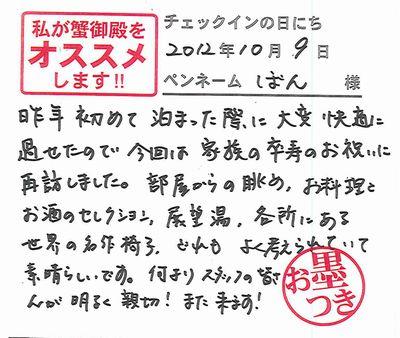 私が蟹御殿を
オススメ
します!!
チェックインの日にち
2012年10月9日
ペンネーム ばん 様
昨年初めて泊まった際に大変快適に
過せたので今回は家族の卒寿のお祝いに
再訪しました。部屋からの眺め、お料理と
お酒のセレクション、展望湯、各所にある
世界の名作椅子、どれもよく考えられていて
素晴らしいです。何よりスタッフの皆さ
んが明るく親切!また来ます!
お墨つき